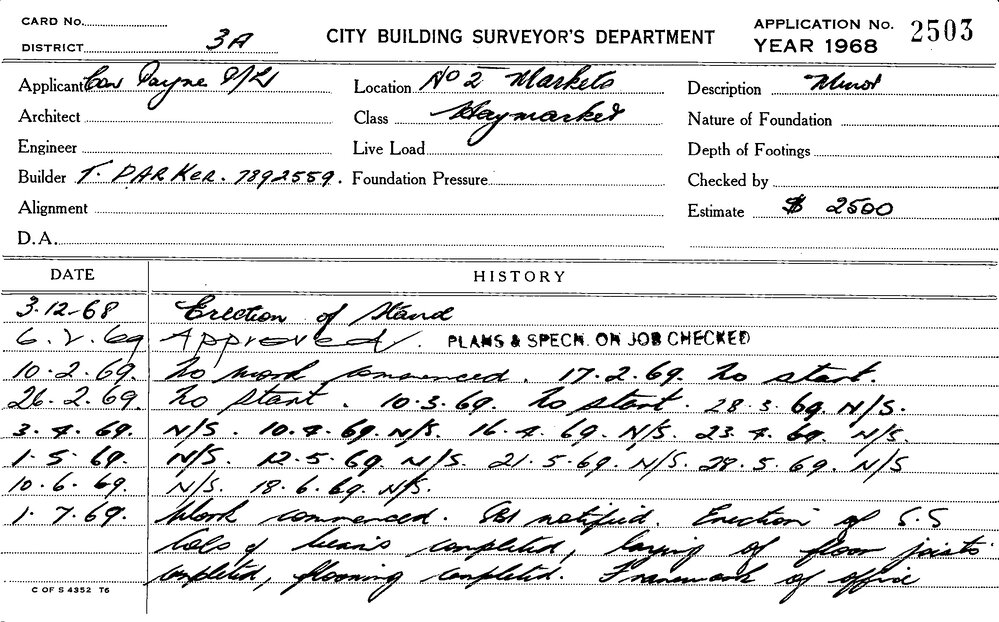 CARD No.
DISTRICT 3A
CITY BUILDING SURVEYOR'S DEPARTMENT
APPLICATION No. 2503
YEAR 1968
Applicant Payne P/L
Location No 2 Markets
Description Minor
Architect
Class Haymarket
Nature of Foundation
Engineer
Live Load
Depth of Footings
Builder T. PARKER. 7892559.
Foundation Pressure
Checked by
Alignment
Estimate $ 2500
D.A.
DATE HISTORY
3.12.68 Erection of Stand
6.2.69 Approved. PLANS & SPECN. ON JOB CHECKED
10.2.69. No work commenced. 17.2.69. No start.
26.2.69. No start. 10.3.69. No start. 28.3.69 N/S.
3.4.69. N/S. 10.4.69. N/S. 16.4.69. N/S. 23.4.69. N/S.
1.5.69. N/S. 12.5.69 N/S. 21.5.69. N/S. 28.5.69. N/S
10.6.69. N/S. 18.6.69. N/S.
1.7.69. Work commenced. notified. Erection of S.S
Cols & beams completed, laying of floor joists
completed, flooring completed. Framework of office
C OF S 4352 T6